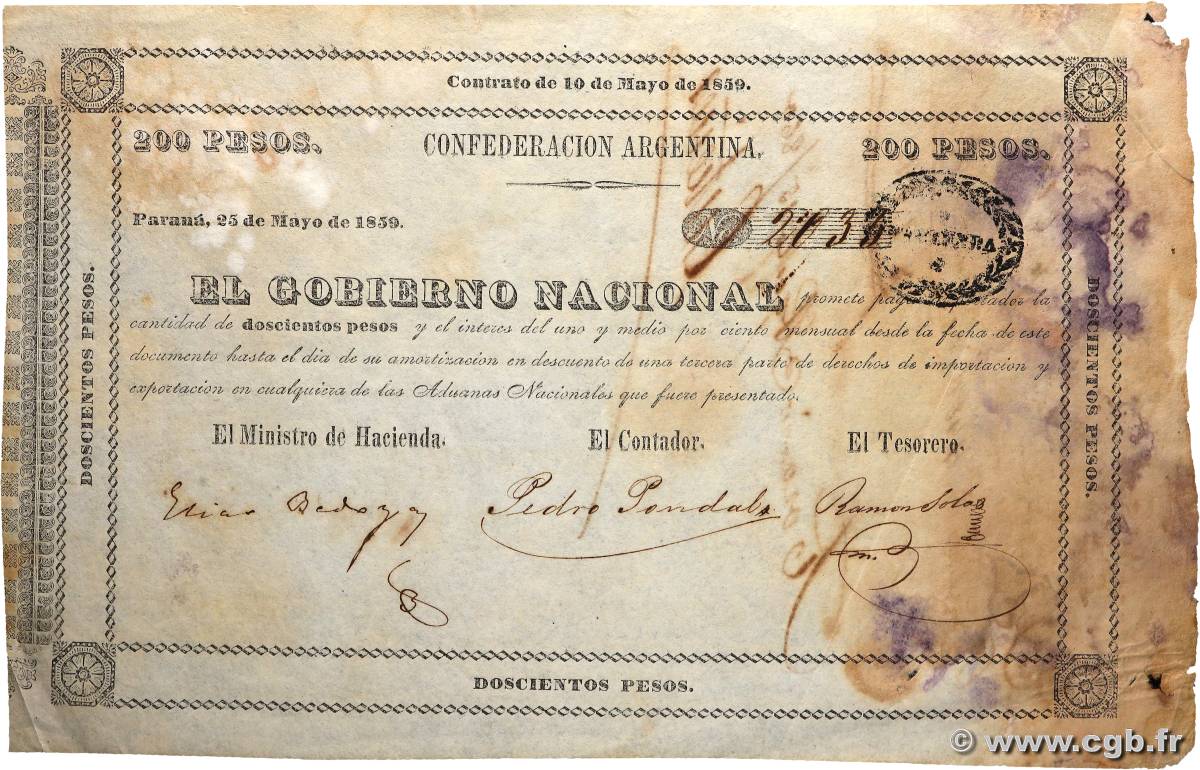 Contrato de 10 de Mayo de 1859.
200 PESOS. CONFEDERACION ARGENTINA. 200 PESOS.
Paraná, 25 de Mayo de 1859.
No
EL GOBIERNO NACIONAL promete la
cantidad de doscientos pesos y el interes del uno y medio por ciento mensual desde la fecha de este
documento hasta el dia de su amortizacion en descuento de una tercera parte de derechos de importacion y
esportacion en cualquiera de las Aduanas Nacionales que fuere presentado.
El Ministro de Hacienda. El Contador. El Tesorero.
Elias Bedoya Pedro Pondal Ramon
DOSCIENTOS PESOS.
DOSCIENTOS PESOS.
DOSCIENTOS PESOS.
© www.cgb.fr